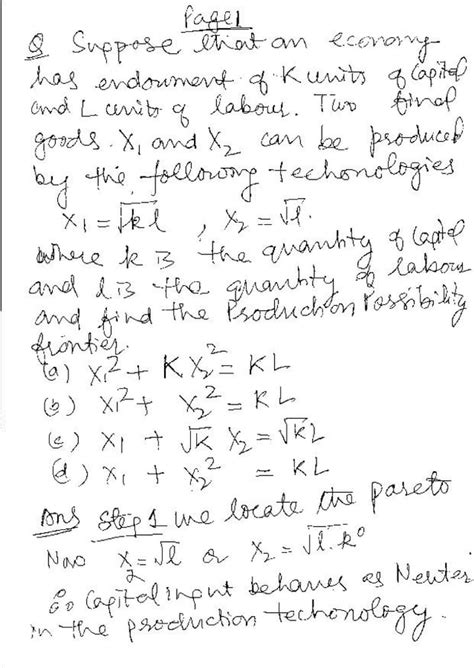 Page 1
Q Suppose that an economy
has endowment of K units of Capital
and L units of labour. Two final
goods X₁ and X₂ can be produced
by the following techonologies
X₁ = √kl , X₂ = √l.
where k is the quantity of Capital
and l is the quantity of labour
and find the Production Possibility
frontier.
(a) X₁² + K X₂² = KL
(b) X₁² + X₂² = KL
(c) X₁ + √K X₂ = √KL
(d) X₁ + X₂² = KL
Ans Step 1 we locate the pareto
Now X₂ = √l or X₂ = √l.k⁰
∴ Capital input behaves as Neuter
in the production techonology.